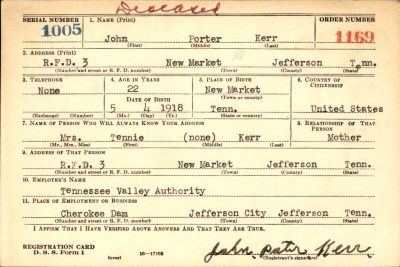 Deceased
SERIAL NUMBER 1. NAME (Print) ORDER NUMBER
1005 John Porter Kerr 1169
(First) (Middle) (Last)
2. ADDRESS (Print)
R.F.D. 3 New Market Jefferson Tenn.
(Number and street or R. F. D. number) (Town) (County) (State)
3. TELEPHONE 4. AGE IN YEARS 5. PLACE OF BIRTH 6. COUNTRY OF CITIZENSHIP
None 22 New Market
DATE OF BIRTH (Town or county)
5 4 1918 Tenn. United States
(Exchange) (Number) (Mo.) (Day) (Yr.) (State or country)
7. NAME OF PERSON WHO WILL ALWAYS KNOW YOUR ADDRESS 8. RELATIONSHIP OF THAT PERSON
Mrs. Tennie (none) Kerr Mother
(Mr., Mrs., Miss) (First) (Middle) (Last)
9. ADDRESS OF THAT PERSON
R.F.D. 3 New Market Jefferson Tenn.
(Number and street or R. F. D. number) (Town) (County) (State)
10. EMPLOYER'S NAME
Tennessee Valley Authority
11. PLACE OF EMPLOYMENT OR BUSINESS
Cherokee Dam Jefferson City Jefferson Tenn.
(Number and street or R. F. D. number) (Town) (County) (State)
I AFFIRM THAT I HAVE VERIFIED ABOVE ANSWERS AND THAT THEY ARE TRUE.
REGISTRATION CARD
D. S. S. Form 1 (over) 16—17105 John Porter Kerr
(Registrant's signature)